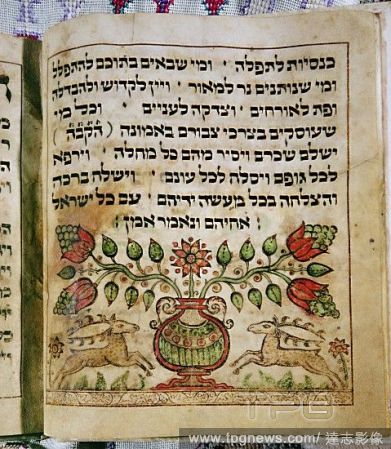 כנסיות להתפלה ׳ ומי שבאים בתוכם להתפלל
ומי שנותנים נר למאור ׳ ויין לקדוש ולהבדלה
ופת לאורחים ׳ וצדקה לעניים ׳ וכל מי
שעוסקים בצרכי צבורם באמונה (הקבה)
ישלם שכרם ויסיר מהם כל מחלה ׳ וירפא
לכל גופם ויסלח לכל עונם ׳ וישלח ברכה
והצלחה בכל מעשה ידיהם ׳ עם כל ישראל
אחיהם ונאמר אמן
TPG
www.tpgnews.com/ 達志影像